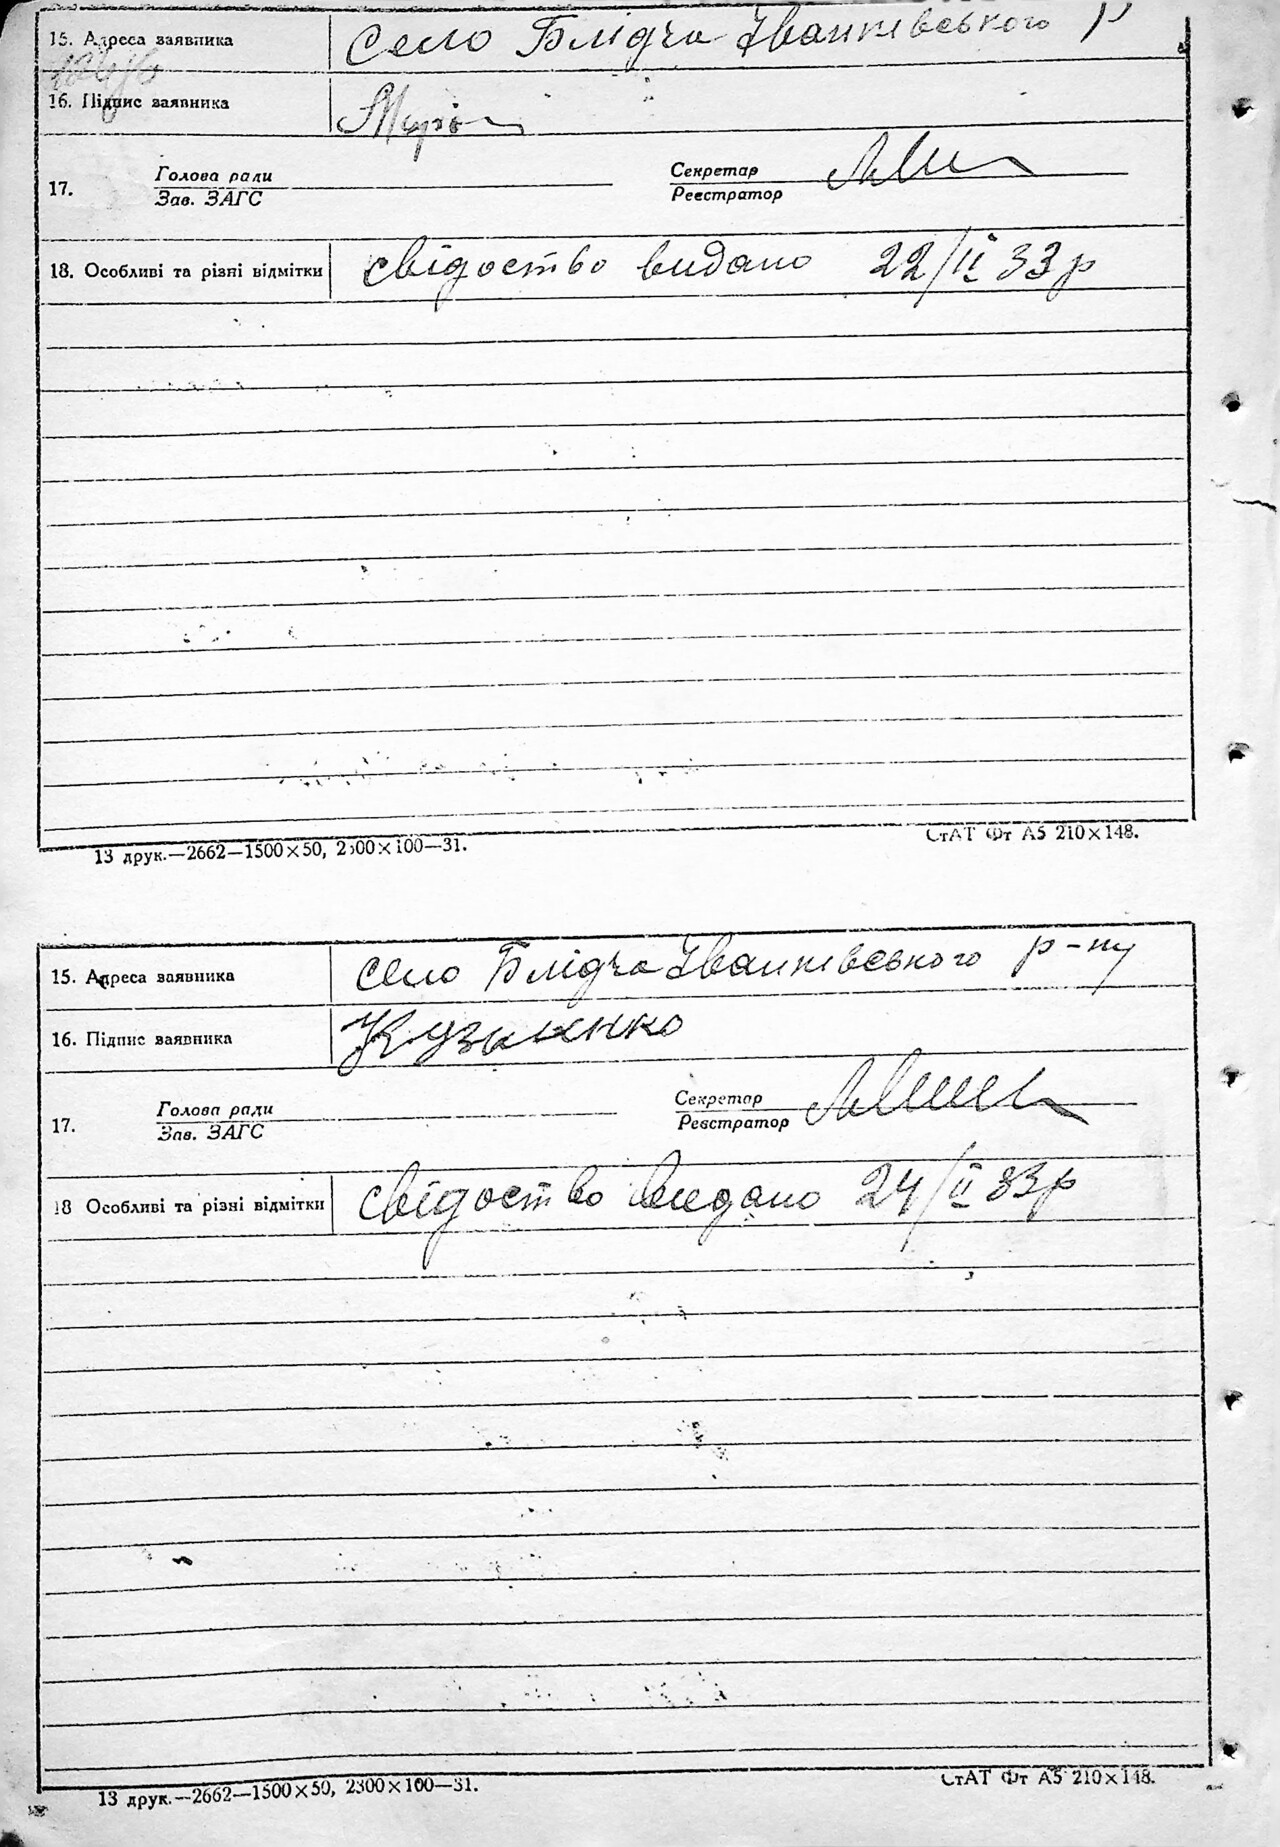 15. Адреса заявника Село Блідча Іванківського р
16. Підпис заявника
17. Голова ради Секретар
Зав. ЗАГС Реєстратор
18. Особливі та різні відмітки свідоство видано 22/ІІ 33 р
13 друк.—2662—1500×50, 2300×100—31. СтАТ Фт А5 210×148.
15. Адреса заявника село Блідча Іванківського р-ну
16. Підпис заявника Кузьменко
17. Голова ради Секретар
Зав. ЗАГС Реєстратор
18 Особливі та різні відмітки свідоство видано 24/ІІ 33 р
13 друк.—2662—1500×50, 2300×100—31. СтАТ Фт А5 210×148.